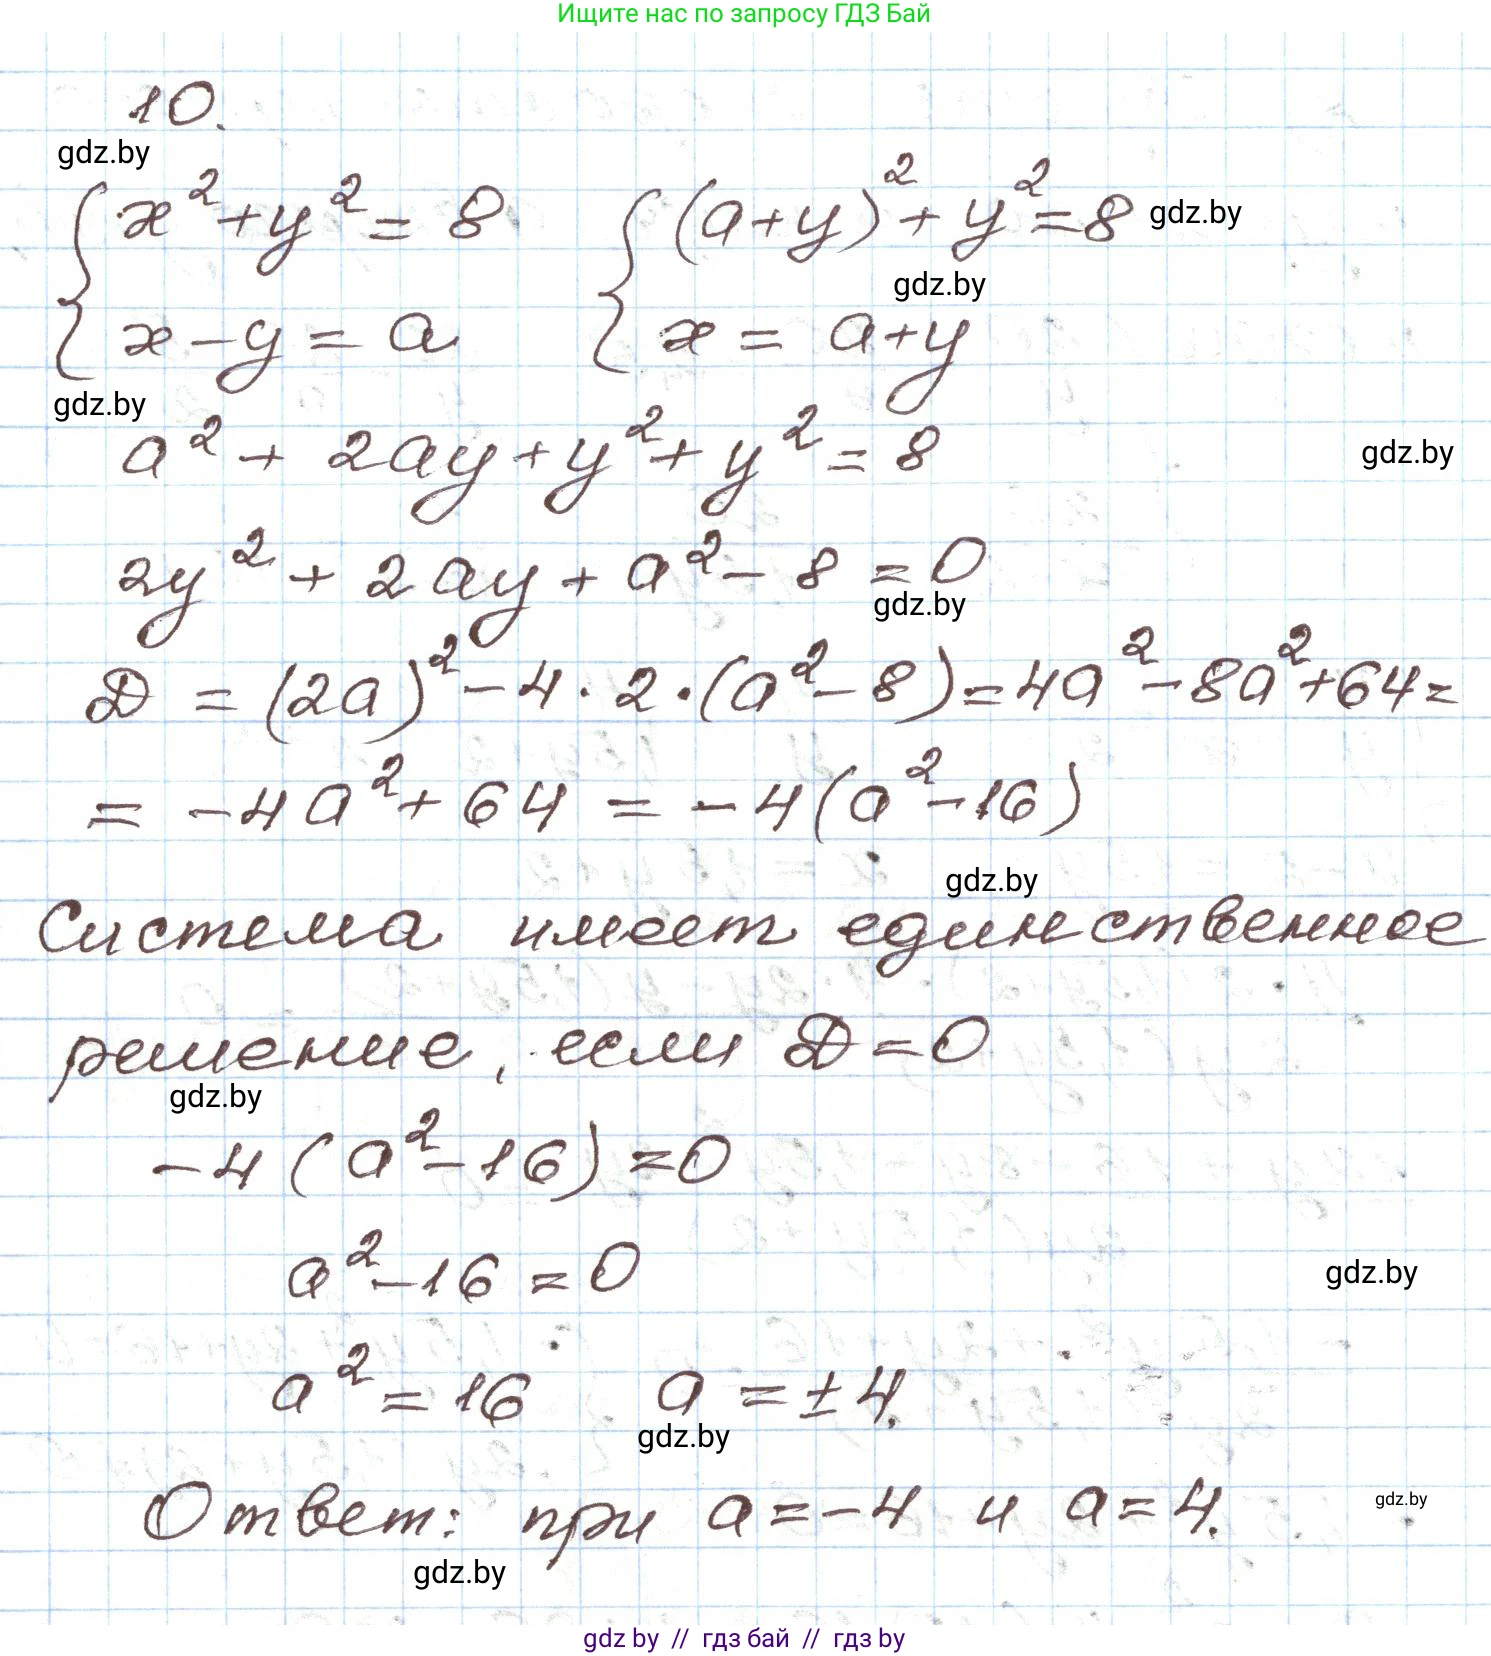 Ищите нас по запросу ГДЗ Бай
10.
gdz.by
{ x² + y² = 8 { (a+y)² + y² = 8 gdz.by
gdz.by
{ x - y = a { x = a+y
gdz.by
a² + 2ay + y² + y² = 8 gdz.by
2y² + 2ay + a² - 8 = 0
gdz.by
D = (2a)² - 4 · 2 · (a² - 8) = 4a² - 8a² + 64 =
= -4a² + 64 = -4(a² - 16)
gdz.by
Система имеет единственное
решение, если D = 0
gdz.by
-4(a² - 16) = 0
a² - 16 = 0 gdz.by
a² = 16 a = ±4.
gdz.by
Ответ: при a = -4 и a = 4. gdz.by
gdz.by
gdz by // гдз бай // гдз by